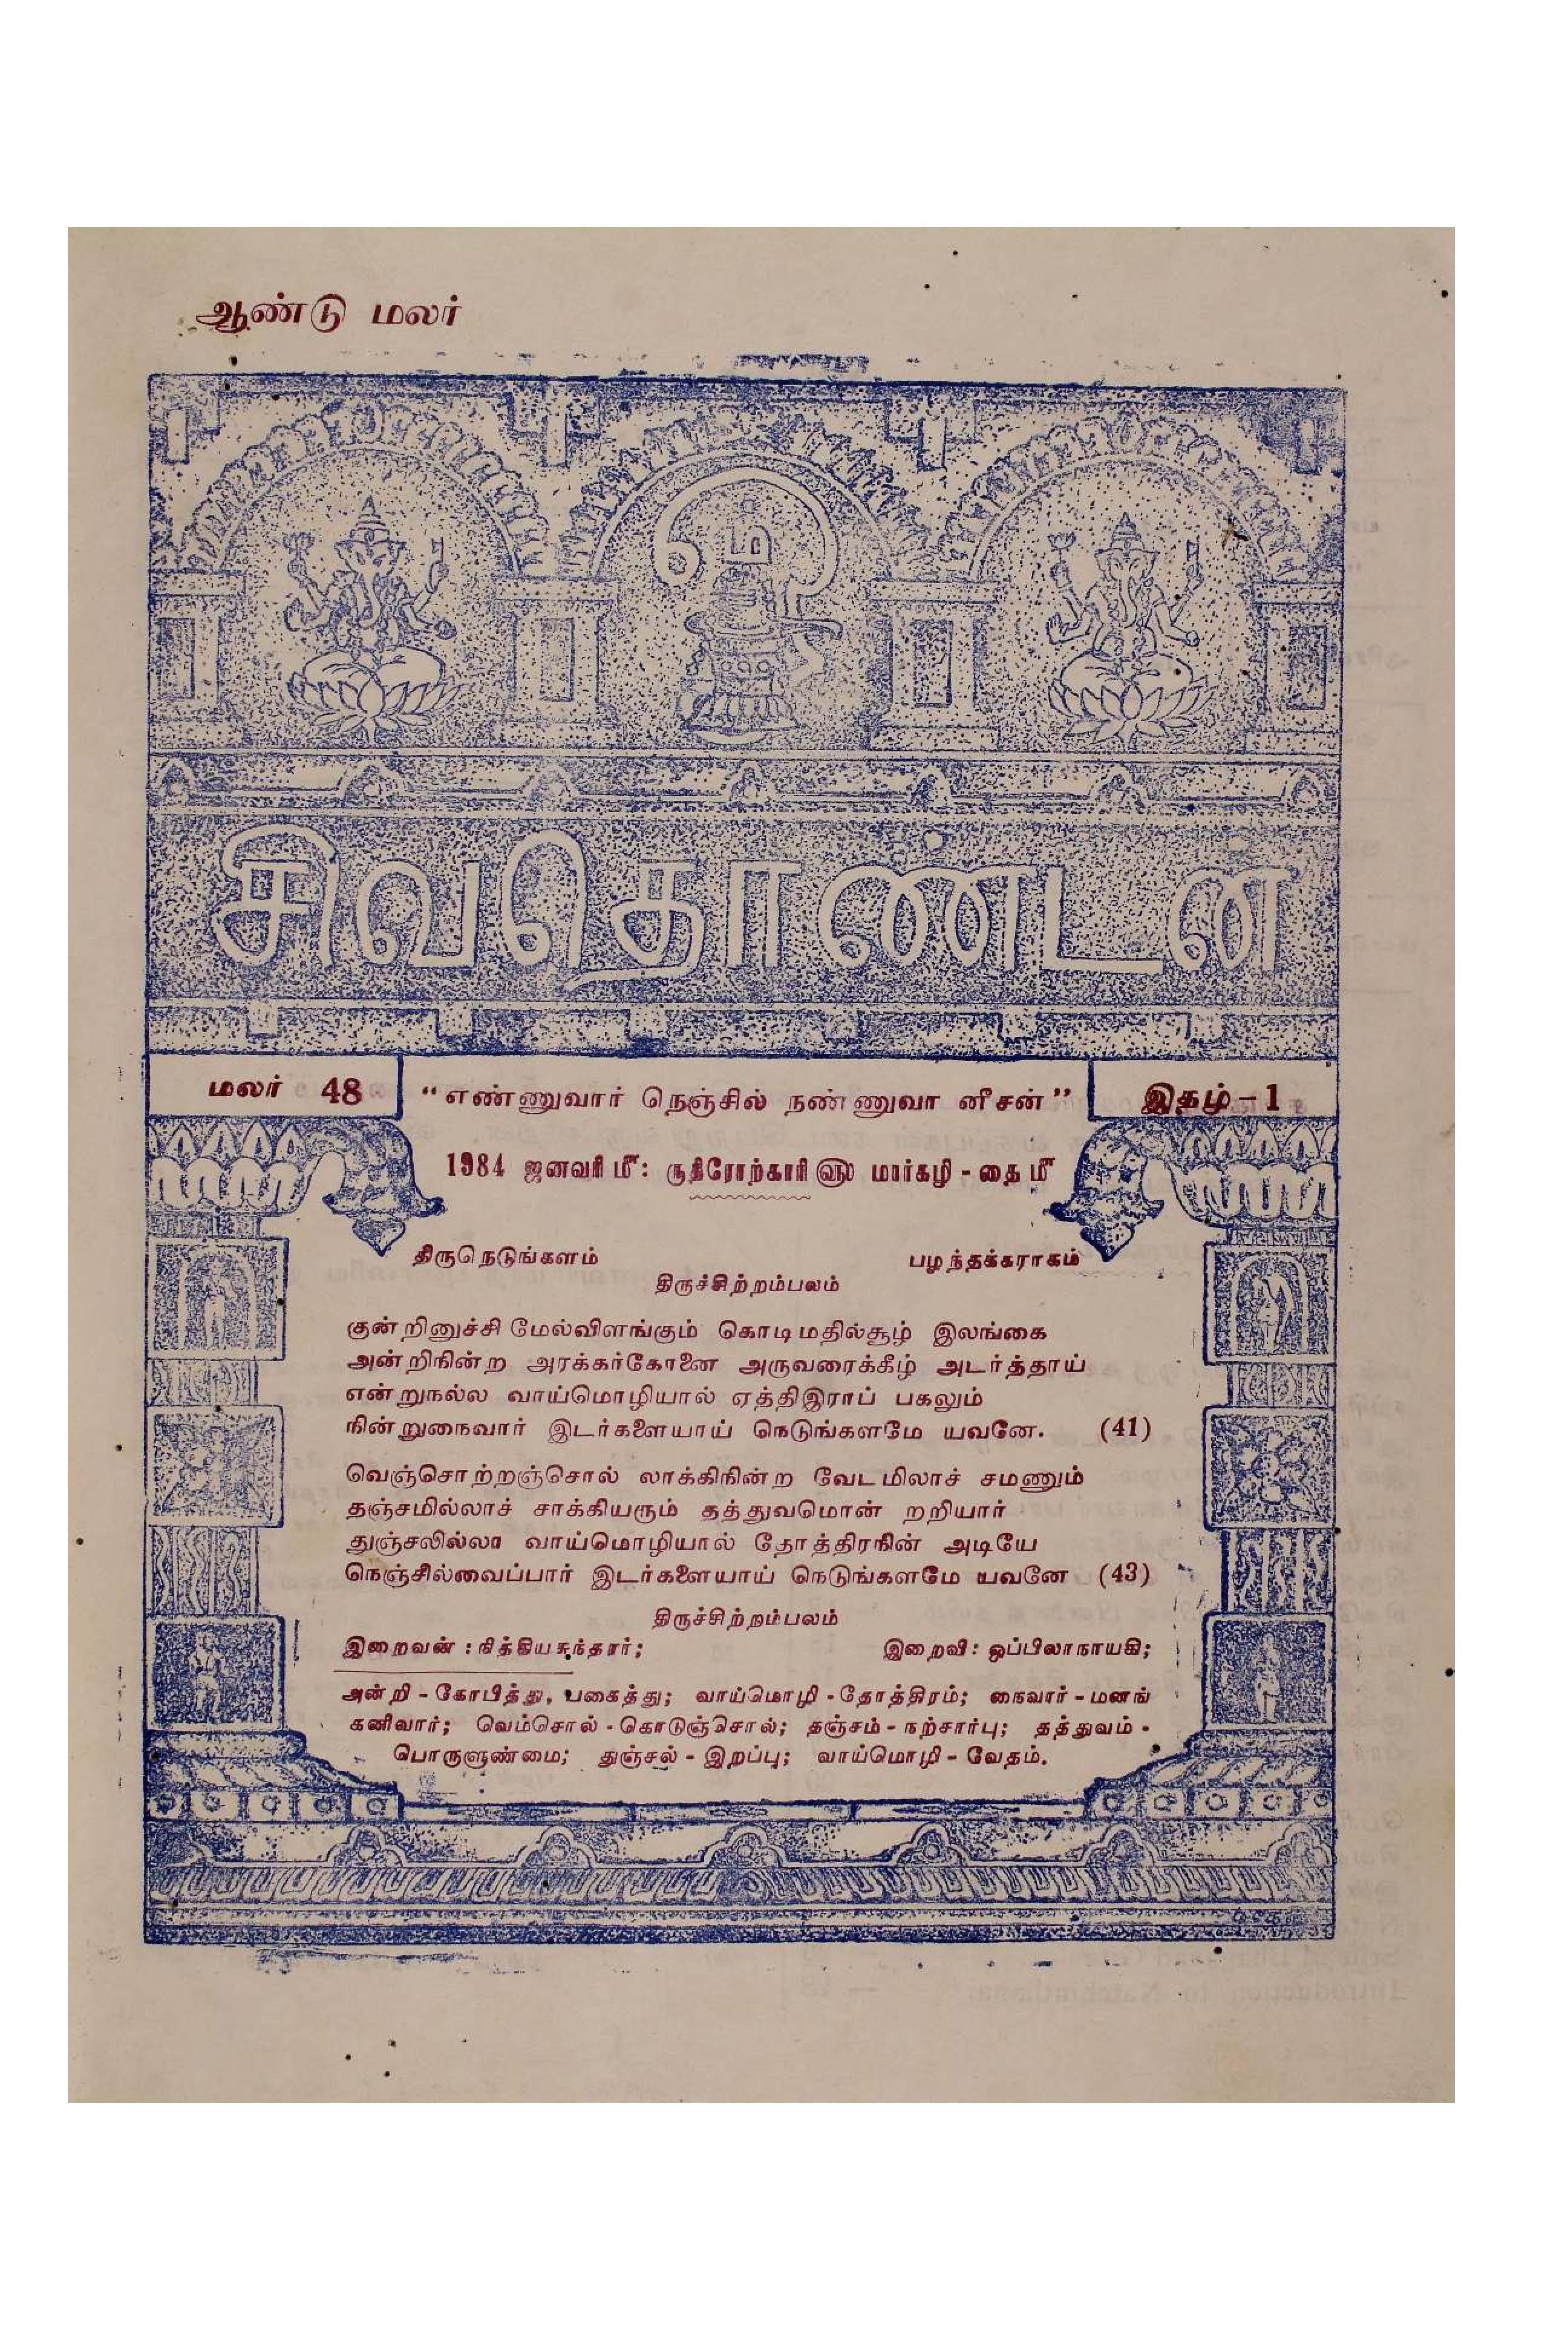 ஆண்டு மலர்
ஓம்
சிவதொண்டன்
மலர் 48
"எண்ணுவார் நெஞ்சில் நண்ணுவா னீசன்"
இதழ் - 1
1984 ஜனவரி மீ: ருதிரோற்காரி ௵ மார்கழி - தை மீ
திருநெடுங்களம் பழந்தக்கராகம்
திருச்சிற்றம்பலம்
குன்றினுச்சி மேல்விளங்கும் கொடிமதில்சூழ் இலங்கை
அன்றிநின்ற அரக்கர்கோனை அருவரைக்கீழ் அடர்த்தாய்
என்றுநல்ல வாய்மொழியால் ஏத்திஇராப் பகலும்
நின்றுநைவார் இடர்களையாய் நெடுங்களமே யவனே. (41)
வெஞ்சொற்றஞ்சொல் லாக்கிநின்ற வேடமிலாச் சமணும்
தஞ்சமில்லாச் சாக்கியரும் தத்துவமொன் றறியார்
துஞ்சலில்லா வாய்மொழியால் தோத்திரநின் அடியே
நெஞ்சில்வைப்பார் இடர்களையாய் நெடுங்களமே யவனே (43)
திருச்சிற்றம்பலம்
இறைவன் : நித்தியசுந்தரர்; இறைவி : ஒப்பிலாநாயகி;
அன்றி - கோபித்து, பகைத்து; வாய்மொழி - தோத்திரம்; நைவார் - மனங்
கனிவார்; வெம்சொல் - கொடுஞ்சொல்; தஞ்சம் - நற்சார்பு; தத்துவம் -
பொருளுண்மை; துஞ்சல் - இறப்பு; வாய்மொழி - வேதம்.